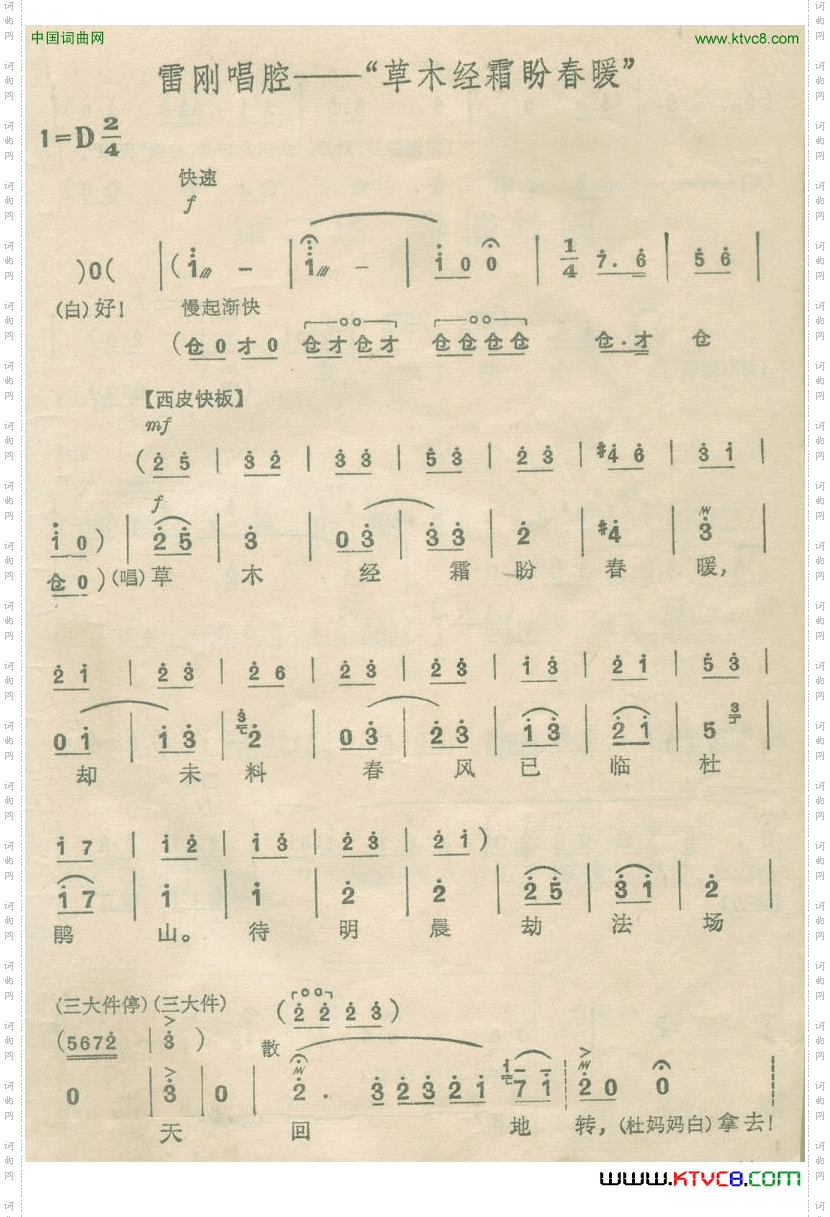 中国词曲网 www.ktvc8.com
雷刚唱腔——“草木经霜盼春暖”
1=D 2/4
快速
f
)0( | (i - | i - | i 0 0 | 1/4 7. 6 | 5 6 |
(白)好! 慢起渐快
(仓 0 才 0 仓才仓才 仓仓仓仓 仓.才 仓
【西皮快板】
mf
(2 5 | 3 2 | 3 3 | 5 3 | 2 3 | #4 6 | 3 1 |
f
i 0) | 2 5 | 3 | 0 3 | 3 3 | 2 | #4 | 3 |
仓 0)(唱)草 木 经 霜 盼 春 暖,
2 1 | 2 3 | 2 6 | 2 3 | 2 3 | 1 3 | 2 1 | 5 3 |
0 1 | 1 3 | 2 | 0 3 | 2 3 | 1 3 | 2 1 | 5 |
却 未 料 春 风 已 临 杜
1 7 | 1 2 | 1 3 | 2 3 | 2 1)
1 7 | 1 | 1 | 2 | 2 | 2 5 | 3 1 | 2
鹃 山。 待 明 晨 劫 法 场
(三大件停)(三大件)
(5672 | 3 ) 散 (2 2 2 3)
0 | 3 | 0 | 2. 3 2 3 2 1 7 1 2 0 0
天 回 地 转, (杜妈妈白)拿去!
www.KTVC8.com